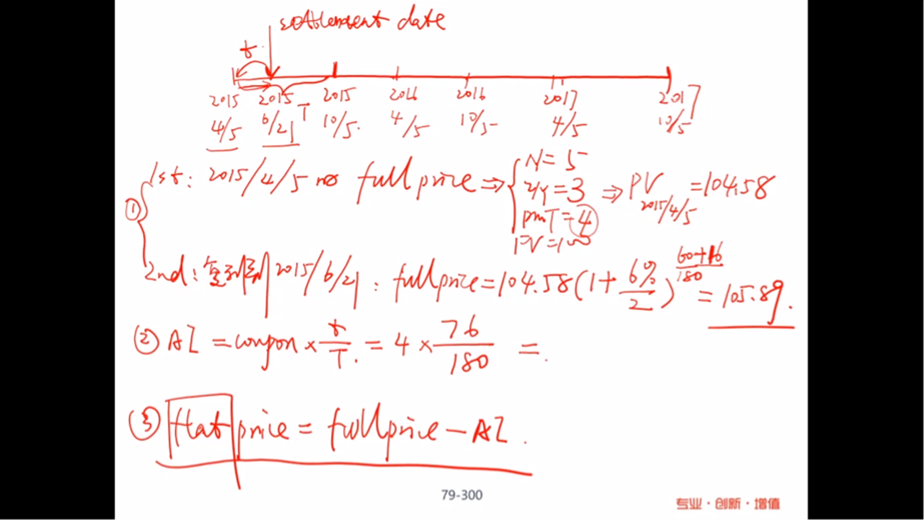 settlement date
t
2015 2015 T 2015 2016 2016 2017 2017
4/5 6/21 10/5 4/5 10/5 4/5 10/5
① 1st: 2015/4/5 full price ⇒ { N=5
I/Y=3 ⇒ PV 2015/4/5 =104.58
PMT=4
FV=100
2nd: 复利到 2015/6/21: full price=104.58(1+6%/2)^(60+16/180) =105.89.
② AI = coupon × t/T. = 4 × 76/180 =.
③ flat price = full price - AI.
79-300
专业·创新·增值